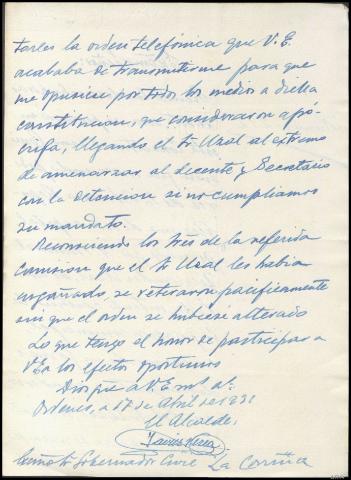 tarles la orden telefónica que V.E.
acababa de transmitirme para que
me opusiese por todos los medios a dicha
constitucion, que consideraron apó-
crifa, llegando el Sr Uzal al extremo
de amenazar al decente y Secretario
con la detencion si no cumpliamos
su mandato.
Reconociendo los tres de la referida
comision que el Sr Uzal les habia
engañado, se retiraron pacificamente
sin que el orden se hubiese alterado
Lo que tengo el honor de participar a
V.E. a los efectos oportunos
Dios gue a V.E. ms as.
Ordenes, a 17 de Abril de 1931
El Alcalde,
Señor Gobernador Civil La Coruña